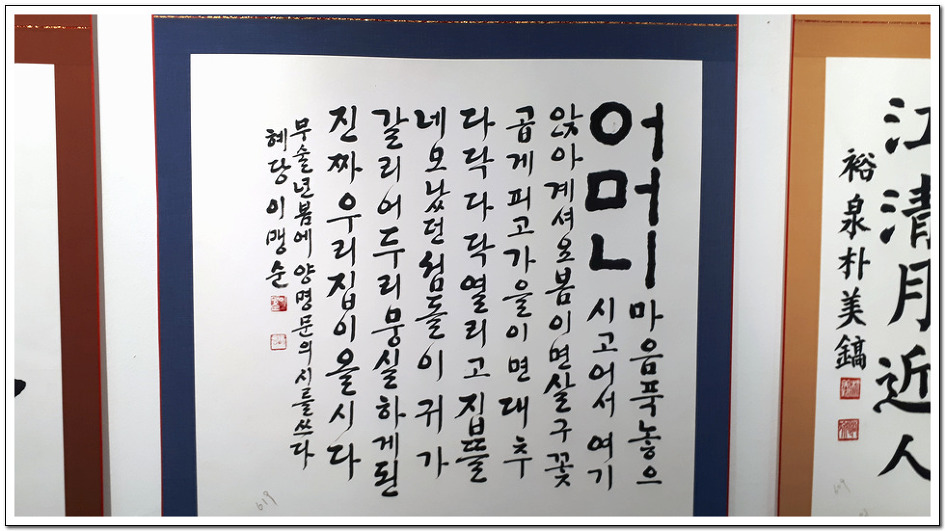 어머니
마음푹놓으
시고어서여기
앉아계셔요봄이면살구꽃
곱게피고가을이면대추
다닥다닥열리고집뜰
네모났던섬돌이귀가
갈리어두리뭉실하게된
진짜우리집이올시다
무술년봄에양명문의시를쓰다
혜당이맹순
619
江清月近人
裕泉朴美鎬